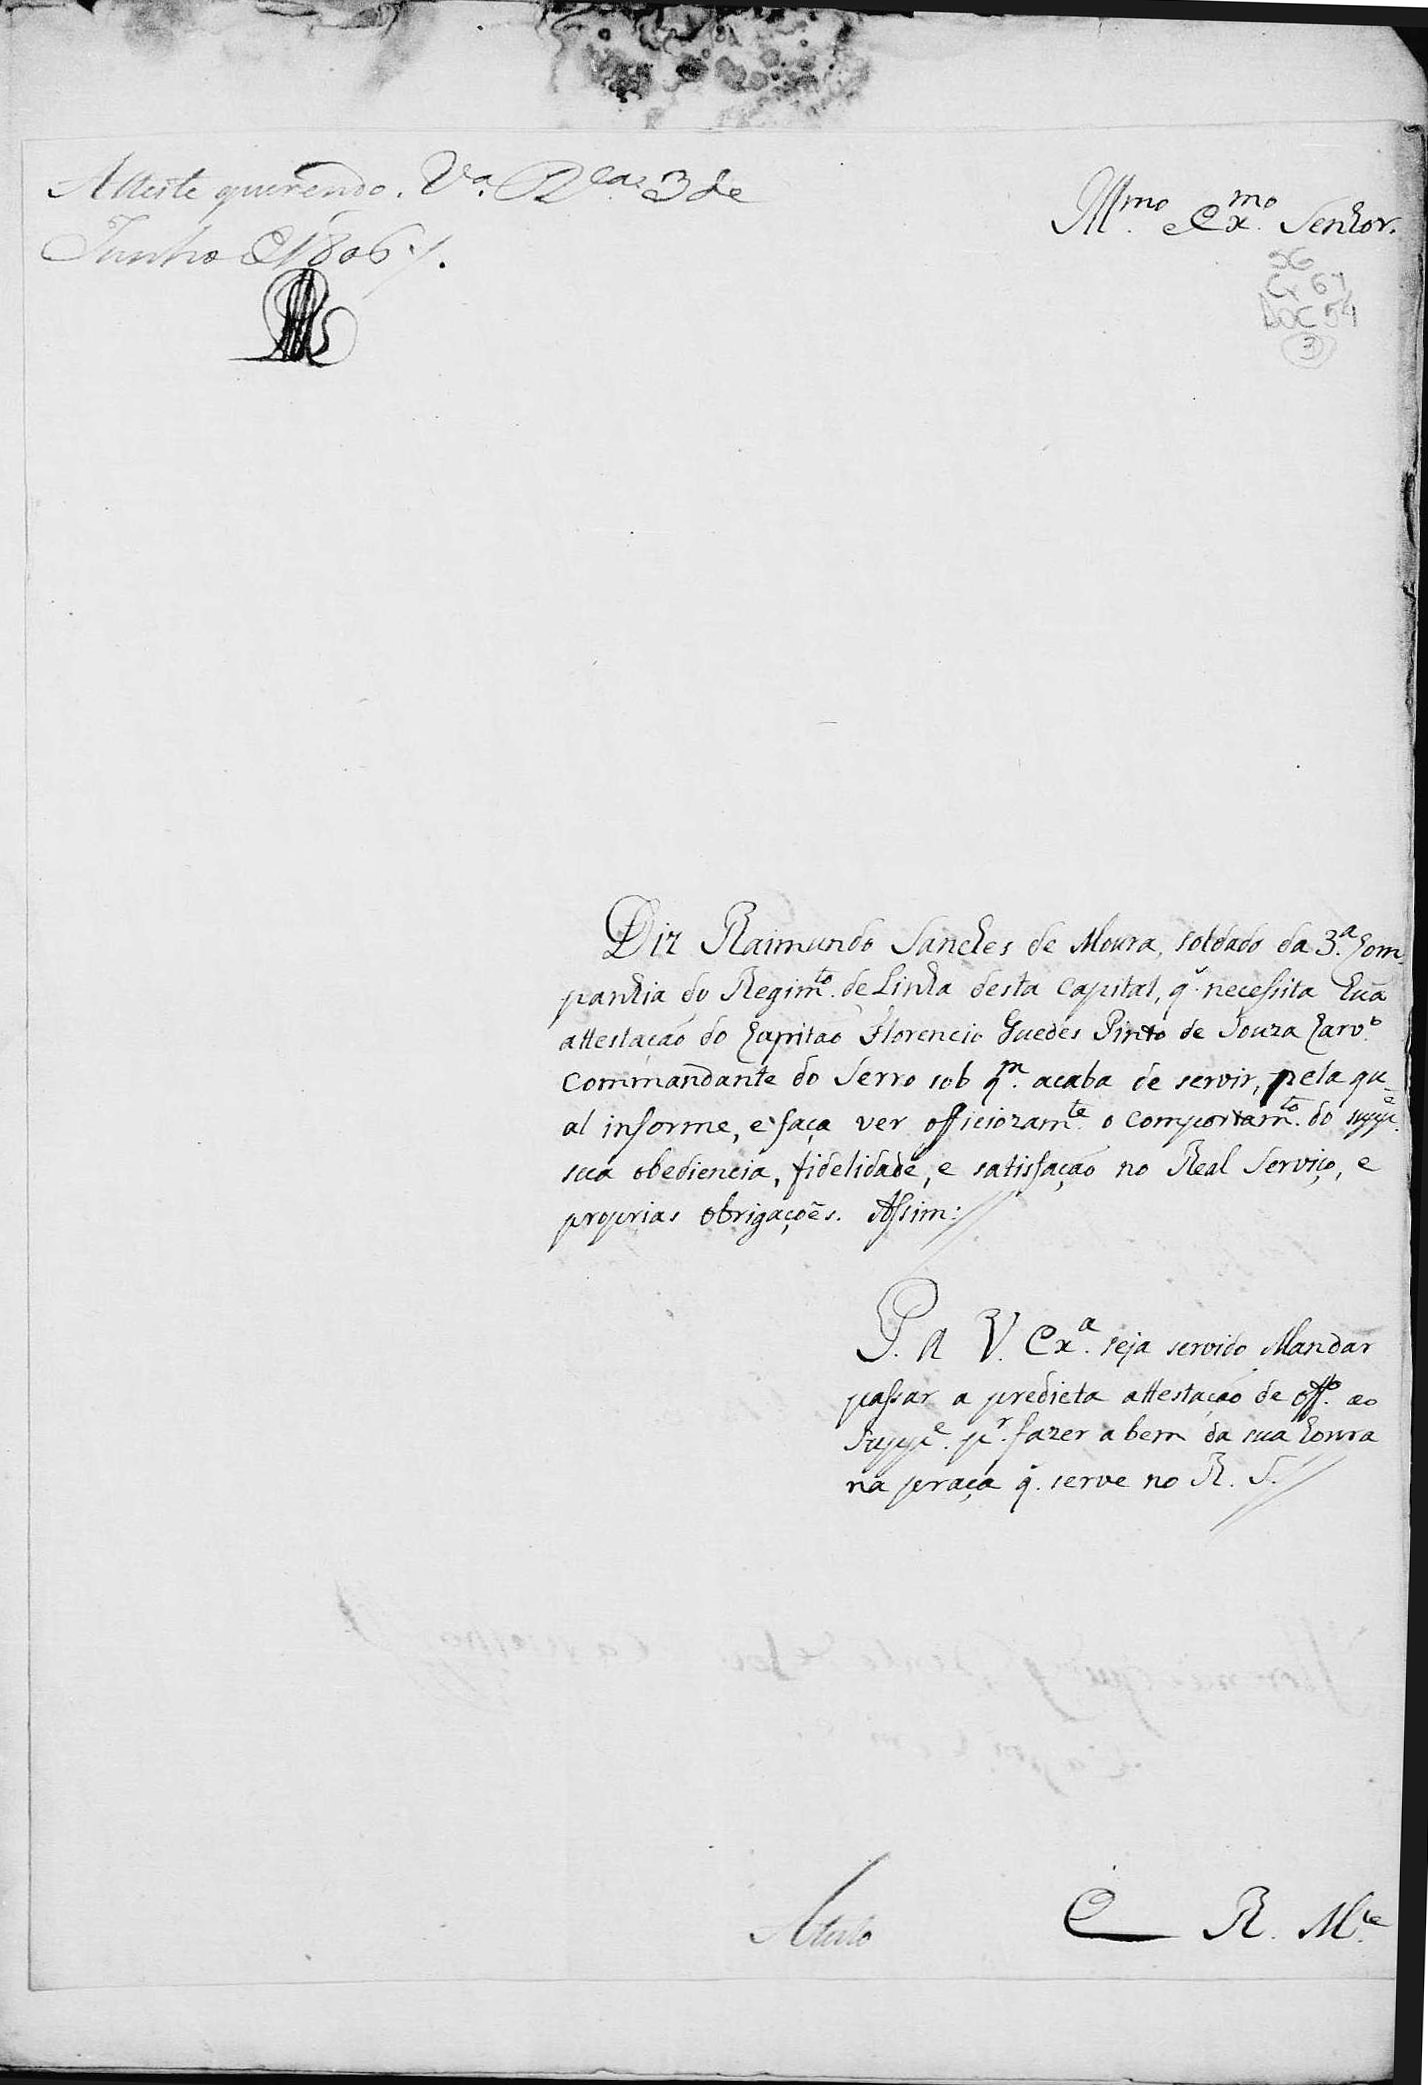 Atteste querendo. Vª. Rcª. 3 de
Junho de 1806 /.
Illmo. e Exmo. Senhor.
SG
Cx 67
DOC 54
3
Diz Raimundo Sanches de Moura, soldado da 3.ª Com-
panhia do Regimto. de Linha desta Capital, q̃. necessita hũa
attestação do Capitão Florencio Guedes Pinto de Souza Carvº.
Commandante do Serro sob qm. acaba de servir, pela qu-
al informe, e faça ver officiozamte. o comportamto. do suppe.
sua obediencia, fidelidade, e satisfação no Real Serviço, e
proprias obrigações. Assim://
P. a V. Exª. seja servido Mandar
passar a predicta attestação de offº. ao
Suppe. pr. fazer a bem da sua honra
na praça q̃. serve no R. S. //
Atesto
E R. Mce.